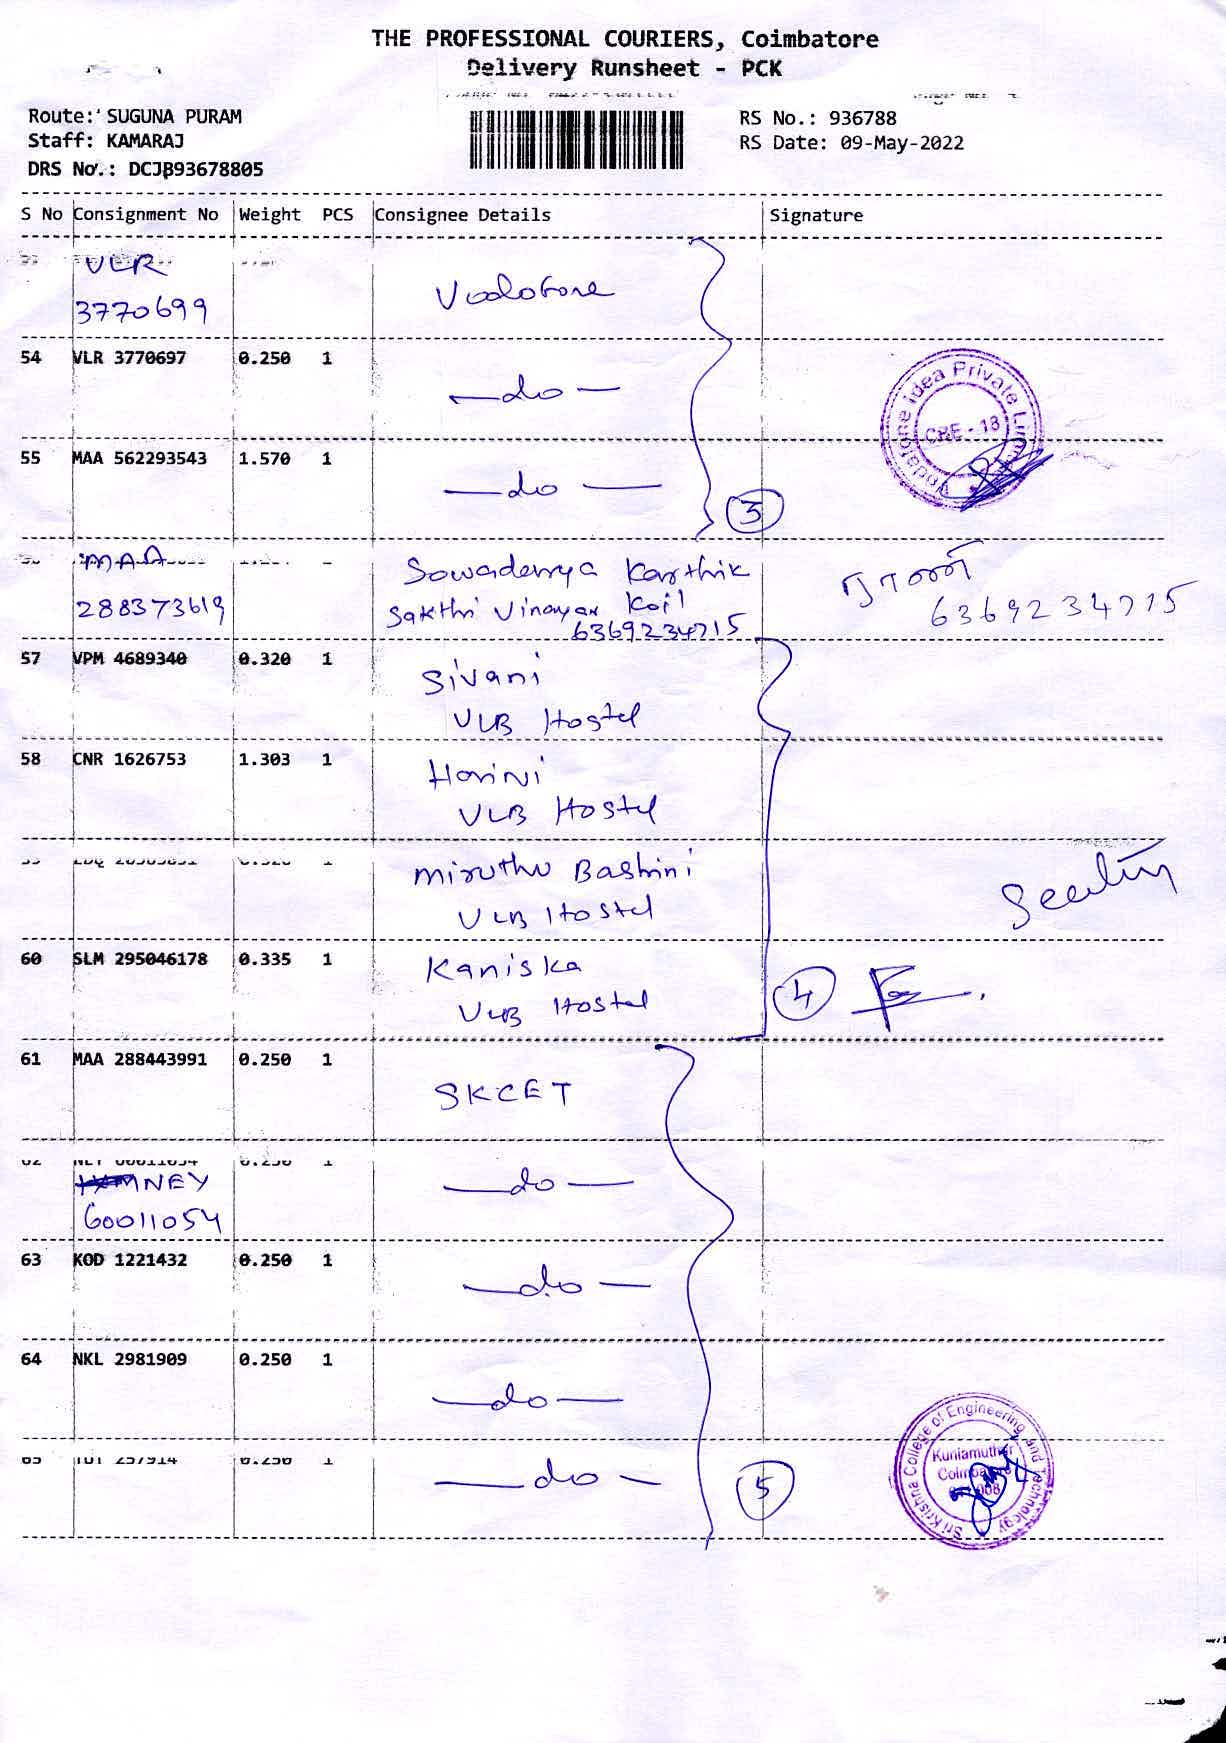 THE PROFESSIONAL COURIERS, Coimbatore
Delivery Runsheet - PCK
Route: SUGUNA PURAM
RS No.: 936788
Staff: KAMARAJ
RS Date: 09-May-2022
DRS No.: DCJB93678805
S No Consignment No Weight PCS Consignee Details Signature
VLR
3770699
Vodofone
54 VLR 3770697 0.250 1
—do—
Vodafone Idea Private Limited
CRE - 13
55 MAA 562293543 1.570 1
—do—
3
MAA
288373619
Sowadenya Karthik
Sakthi Vinayak Koil
6369234715
ராணி
6369234715
57 VPM 4689340 0.320 1
Sivani
VLB Hostel
58 CNR 1626753 1.303 1
Harini
VLB Hostel
Miruthu Bashini
VLB Hostel
60 SLM 295046178 0.335 1
Kaniska
VLB Hostel
4
61 MAA 288443991 0.250 1
SKCET
NEY
60011054
—do—
63 KOD 1221432 0.250 1
—do—
64 NKL 2981909 0.250 1
—do—
257914 0.250 1
—do—
5
Sri Krishna College of Engineering and Technology
Kuniamuthur